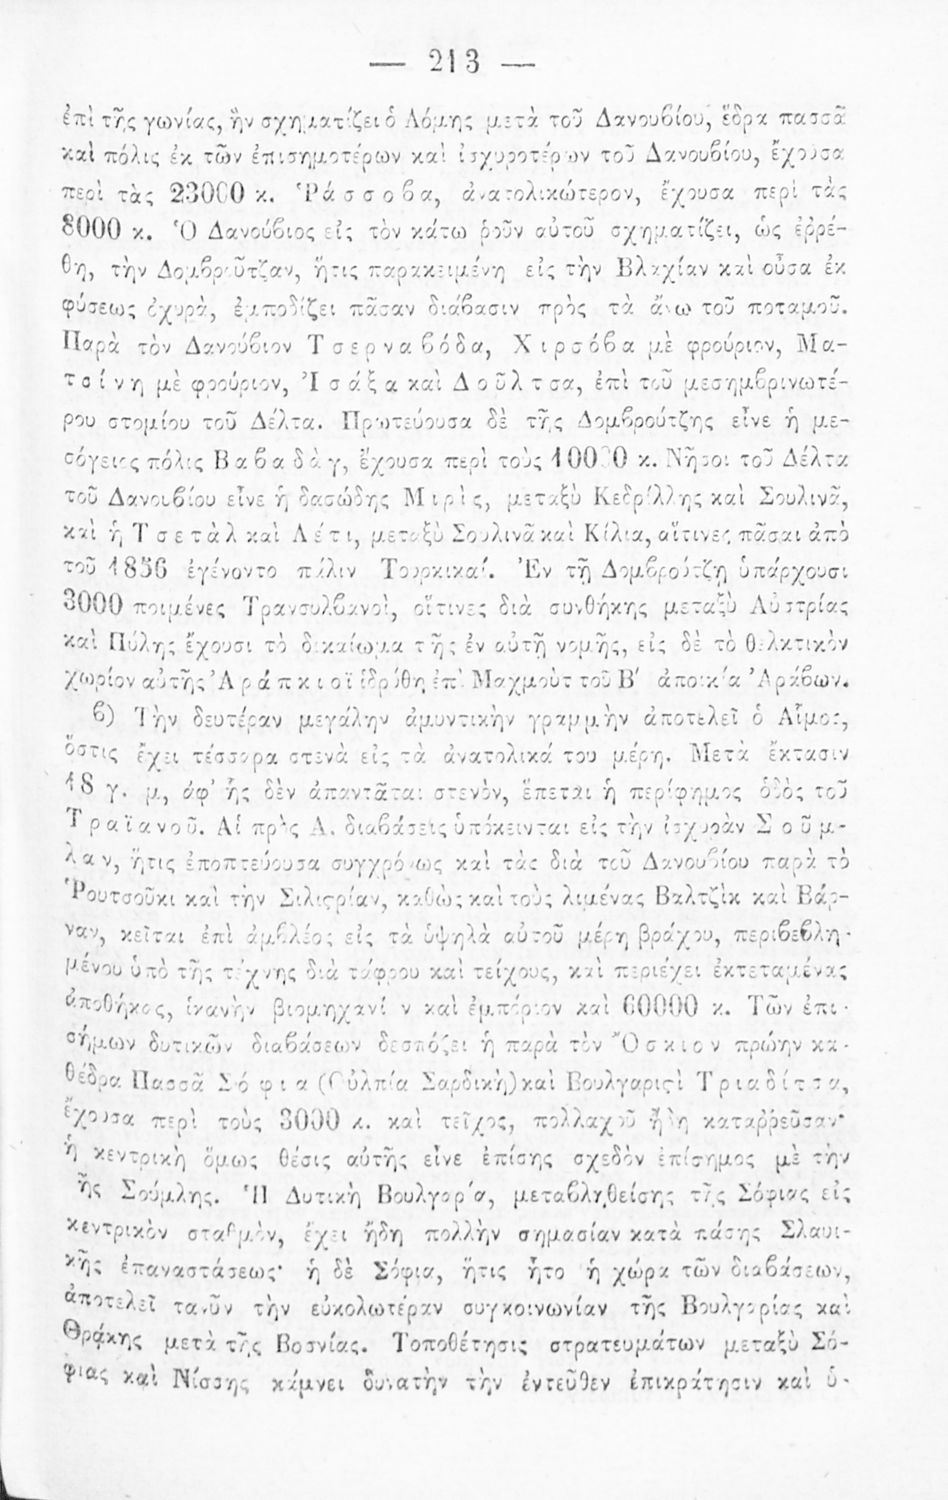 — 213 —
ἐπὶ τῆς γωνίας, ἣν σχηματίζει ὁ Λόμης μετὰ τοῦ Δανουβίου, ἕδρα πασσᾶ
καὶ πόλις ἐκ τῶν ἐπισημοτέρων καὶ ἰσχυροτέρων τοῦ Δανουβίου, ἔχουσα
περὶ τὰς 23000 κ. Ῥάσσοβα, ἀνατολικώτερον, ἔχουσα περὶ τὰς
8000 κ. Ὁ Δανούβιος εἰς τὸν κάτω ῥοῦν αὐτοῦ σχηματίζει, ὡς ἐῤῥέ-
θη, τὴν Δομβρούτζαν, ἥτις παρακειμένη εἰς τὴν Βλαχίαν καὶ οὖσα ἐκ
φύσεως ὀχυρὰ, ἐμποδίζει πᾶσαν διάβασιν πρὸς τὰ ἄνω τοῦ ποταμοῦ.
Παρὰ τὸν Δανούβιον Τσερναβόδα, Χιρσόβα μὲ φρούριον, Μα-
τσίνη μὲ φρούριον, Ἰσάξα καὶ Δοῦλτσα, ἐπὶ τοῦ μεσημβρινωτέ-
ρου στομίου τοῦ Δέλτα. Πρωτεύουσα δὲ τῆς Δομβρούτζης εἶνε ἡ με-
σόγειος πόλις Βαβαδὰγ, ἔχουσα περὶ τοὺς 10000 κ. Νῆσοι τοῦ Δέλτα
τοῦ Δανουβίου εἶνε ἡ δασώδης Μιρὶς, μεταξὺ Κεδρίλλης καὶ Σουλινᾶ,
καὶ ἡ Τσετὰλ καὶ Λέτι, μεταξὺ Σουλινᾶ καὶ Κίλια, αἵτινες πᾶσαι ἀπὸ
τοῦ 1856 ἐγένοντο πάλιν Τουρκικαί. Ἐν τῇ Δομβρούτζῃ ὑπάρχουσι
3000 ποιμένες Τρανσυλβανοὶ, οἵτινες διὰ συνθήκης μεταξὺ Αὐστρίας
καὶ Πύλης ἔχουσι τὸ δικαίωμα τῆς ἐν αὐτῇ νομῆς, εἰς δὲ τὸ θελκτικὸν
χωρίον αὐτῆς Ἀράπκιοϊ ἱδρύθη ἐπὶ Μαχμοὺτ τοῦ Β′ ἀποικία Ἀράβων.
β) Τὴν δευτέραν μεγάλην ἀμυντικὴν γραμμὴν ἀποτελεῖ ὁ Αἷμος,
ὅστις ἔχει τέσσαρα στενὰ εἰς τὰ ἀνατολικά του μέρη. Μετὰ ἔκτασιν
18 γ. μ, ἀφ’ ἧς δὲν ἀπαντᾶται στενὸν, ἕπεται ἡ περίφημος ὁδὸς τοῦ
Τραϊανοῦ. Αἱ πρὸς Α. διαβάσεις ὑπόκεινται εἰς τὴν ἰσχυρὰν Σοῦμ-
λαν, ἥτις ἐποπτεύουσα συγχρόνως καὶ τὰς διὰ τοῦ Δανουβίου παρὰ τὸ
Ῥουτσοῦκι καὶ τὴν Σιλιστρίαν, καθὼς καὶ τοὺς λιμένας Βαλτζὶκ καὶ Βάρ-
ναν, κεῖται ἐπὶ ἀμβλέος εἰς τὰ ὑψηλὰ αὐτοῦ μέρη βράχου, περιβεβλη-
μένου ὑπὸ τῆς τέχνης διὰ τάφρου καὶ τείχους, καὶ περιέχει ἐκτεταμένας
ἀποθήκας, ἱκανὴν βιομηχανίαν καὶ ἐμπόριον καὶ 60000 κ. Τῶν ἐπι-
σήμων δυτικῶν διαβάσεων δεσπόζει ἡ παρὰ τὸν Ὄσκιον πρώην κα-
θέδρα Πασσᾶ Σόφια (Οὐλπία Σαρδικὴ) καὶ Βουλγαριστὶ Τριαδίτσα,
ἔχουσα περὶ τοὺς 3000 κ. καὶ τεῖχος, πολλαχοῦ ἤδη καταῤῥεῦσαν·
ἡ κεντρικὴ ὅμως θέσις αὐτῆς εἶνε ἐπίσης σχεδὸν ἐπίσημος μὲ τὴν
τῆς Σούμλης. Ἡ Δυτικὴ Βουλγαρία, μεταβληθείσης τῆς Σόφιας εἰς
κεντρικὸν σταθμὸν, ἔχει ἤδη πολλὴν σημασίαν κατὰ πάσης Σλαυι-
κῆς ἐπαναστάσεως· ἡ δὲ Σόφια, ἥτις ἦτο ἡ χώρα τῶν διαβάσεων,
ἀποτελεῖ τανῦν τὴν εὐκολωτέραν συγκοινωνίαν τῆς Βουλγαρίας καὶ
Θράκης μετὰ τῆς Βοσνίας. Τοποθέτησις στρατευμάτων μεταξὺ Σό-
φιας καὶ Νίσσης κάμνει δυνατὴν τὴν ἐντεῦθεν ἐπικράτησιν καὶ ὑ-